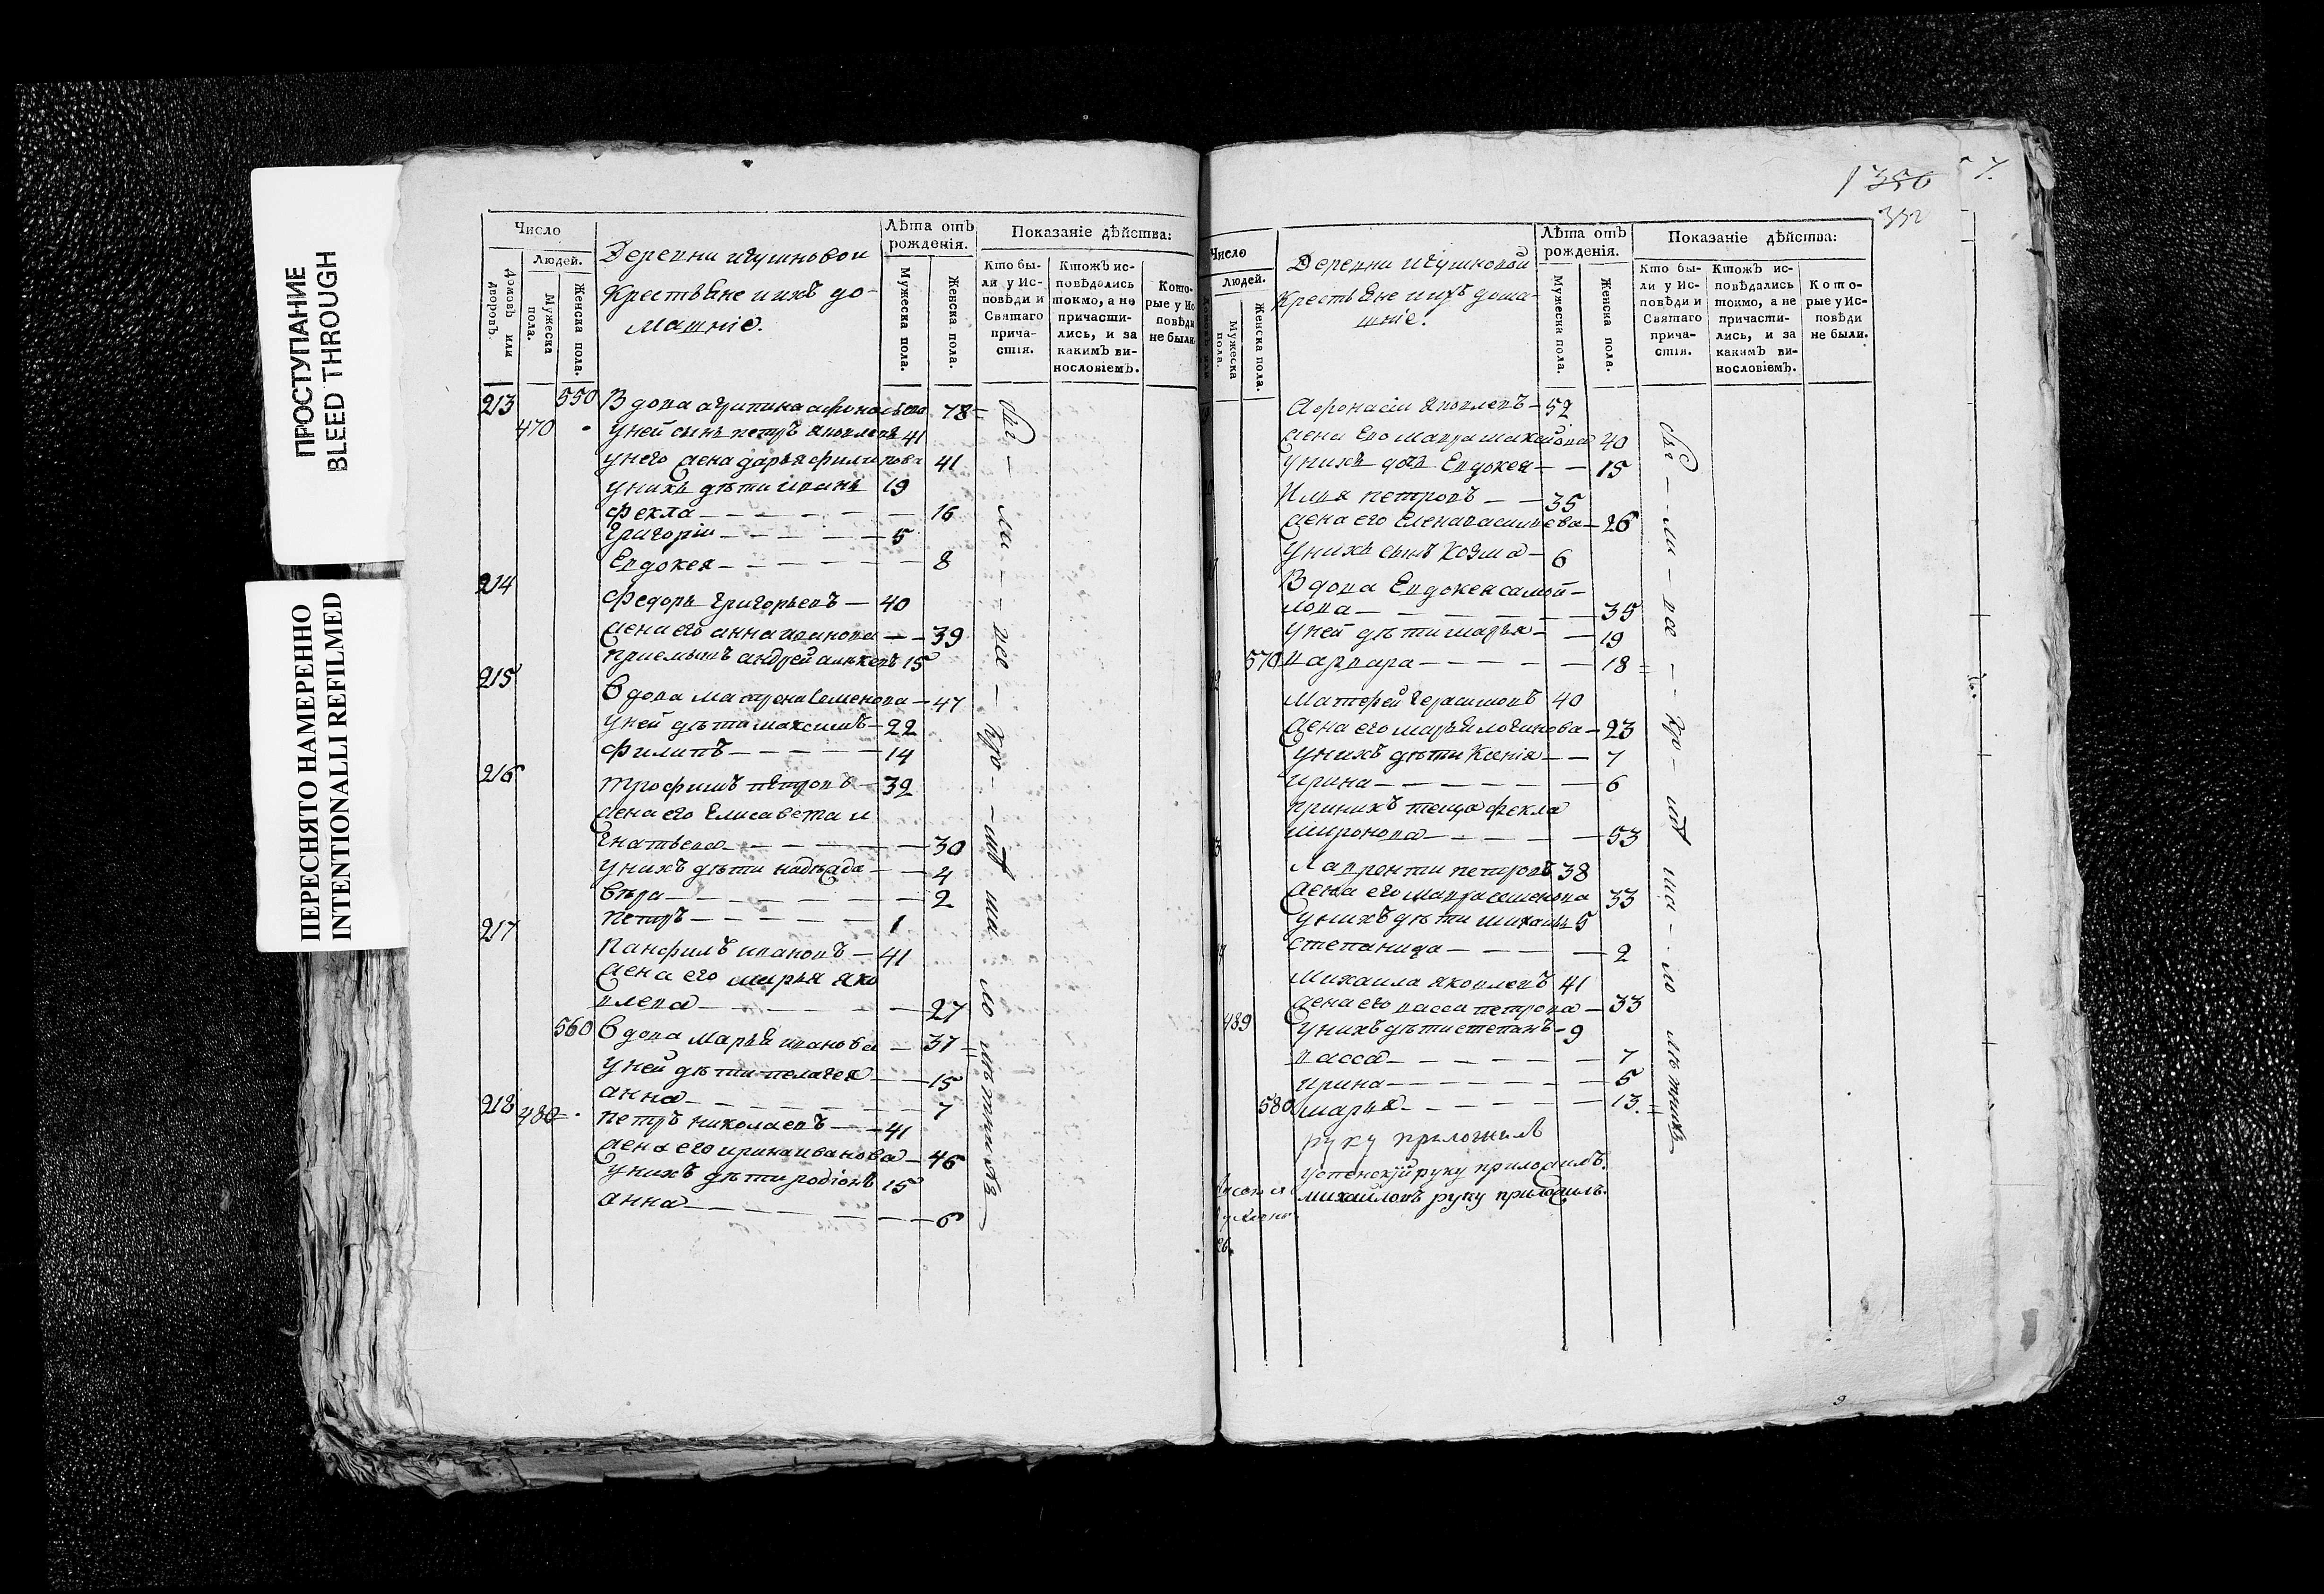 ПРОСТУПАНИЕ
BLEED THROUGH
ПЕРЕСНЯТО НАМЕРЕННО
INTENTIONALLI REFILMED
Число
Людей.
домовъ или дворовъ.
Мужеска пола.
Женска пола.
Деревни
Крестьяне и ихъ до-
машніе.
Лѣта отъ рожденія.
Мужеска пола.
Женска пола.
Показаніе дѣйства:
Кто бы-
ли у Ис-
повѣди и
Святаго
прича-
стія.
Ктожъ ис-
повѣдались
токмо, а не
причасти-
лись, и за
какимъ ви-
нословіемъ.
Кото-
рые у Ис
повѣди
не были
213 550 Вдова агрипина афонасьева 78
470 у ней сынъ петръ яковлевъ 41
у него жена дарья филипова 41
у нихъ дѣти иванъ 19
фекла 16
григоріи 5
Евдокея 8
214
федоръ григорьевъ 40
жена его анна иванова 39
приемышъ андрей 15
215
вдова матрена семенова 47
у ней дѣти максимъ 22
филипъ 14
216
трофимъ петровъ 39
жена его Елисавета и
гнатьева 30
у нихъ дѣти надежда 4
вѣра 2
петръ 1
217
Панфилъ ивановъ 41
жена его марья яко
влева 27
560 вдова марья иванова 37
у ней дѣти пелагея 15
анна 7
218 480
петръ николаевъ 41
жена его ирина иванова 46
у нихъ дѣти родіонъ 15
анна 6
350
352
Число
Людей.
Мужеска пола.
Женска пола.
Деревни
Крестьяне и ихъ дома-
шніе.
Лѣта отъ рожденія.
Мужеска пола.
Женска пола.
Показаніе дѣйства:
Кто бы-
ли у Ис-
повѣди и
Святаго
прича-
стія.
Ктожъ ис-
повѣдались
токмо, а не
причасти-
лись, и за
какимъ ви-
нословіемъ.
Кото-
рые у Ис-
повѣди
не были.
Афонасіи яковлевъ 52
жена Его мавра 40
у нихъ дочь Евдокея 15
Илья петровъ 35
жена его Елена васильева 26
у нихъ сынъ козма 6
Вдова Евдокея самой-
лова 39
у ней дѣти марья 19
570 варвара 18
Матфей герасимовъ 40
жена его марья логинова 23
у нихъ дѣти Ксенія 7
ирина 6
при нихъ теща фекла
миронова 53
Лаврентіи петровъ 38
жена его мавра семенова 33
у нихъ дѣти михаилъ 5
степанида 2
Михаила яковлевъ 41
жена его васса петрова 33
489 у нихъ дѣти степанъ 9
васса 7
ирина 5
580 марья 13
руку приложилъ
успенскій руку приложилъ.
михайловъ руку приложилъ.